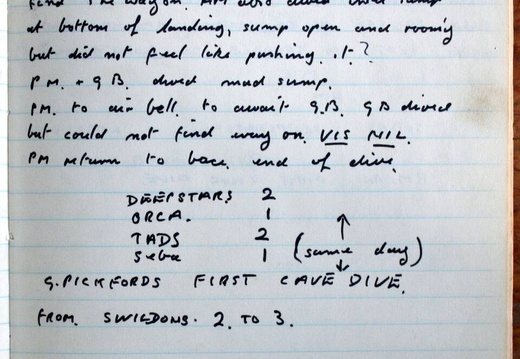 find the way on. PM also dived dual sump
at bottom of landing, sump open and roomy
but did not feel like pushing it?
PM. + GB. dived mud sump.
PM. to air bell. to await GB. GB dived
but could not find way on. VIS NIL.
PM return to base. end of dive.
DEEPSTARS 2
ORCA. 1
TADS 2
Seba 1
(same day)
G. PICKFORDS FIRST CAVE DIVE.
FROM SWILDONS. 2. TO 3.